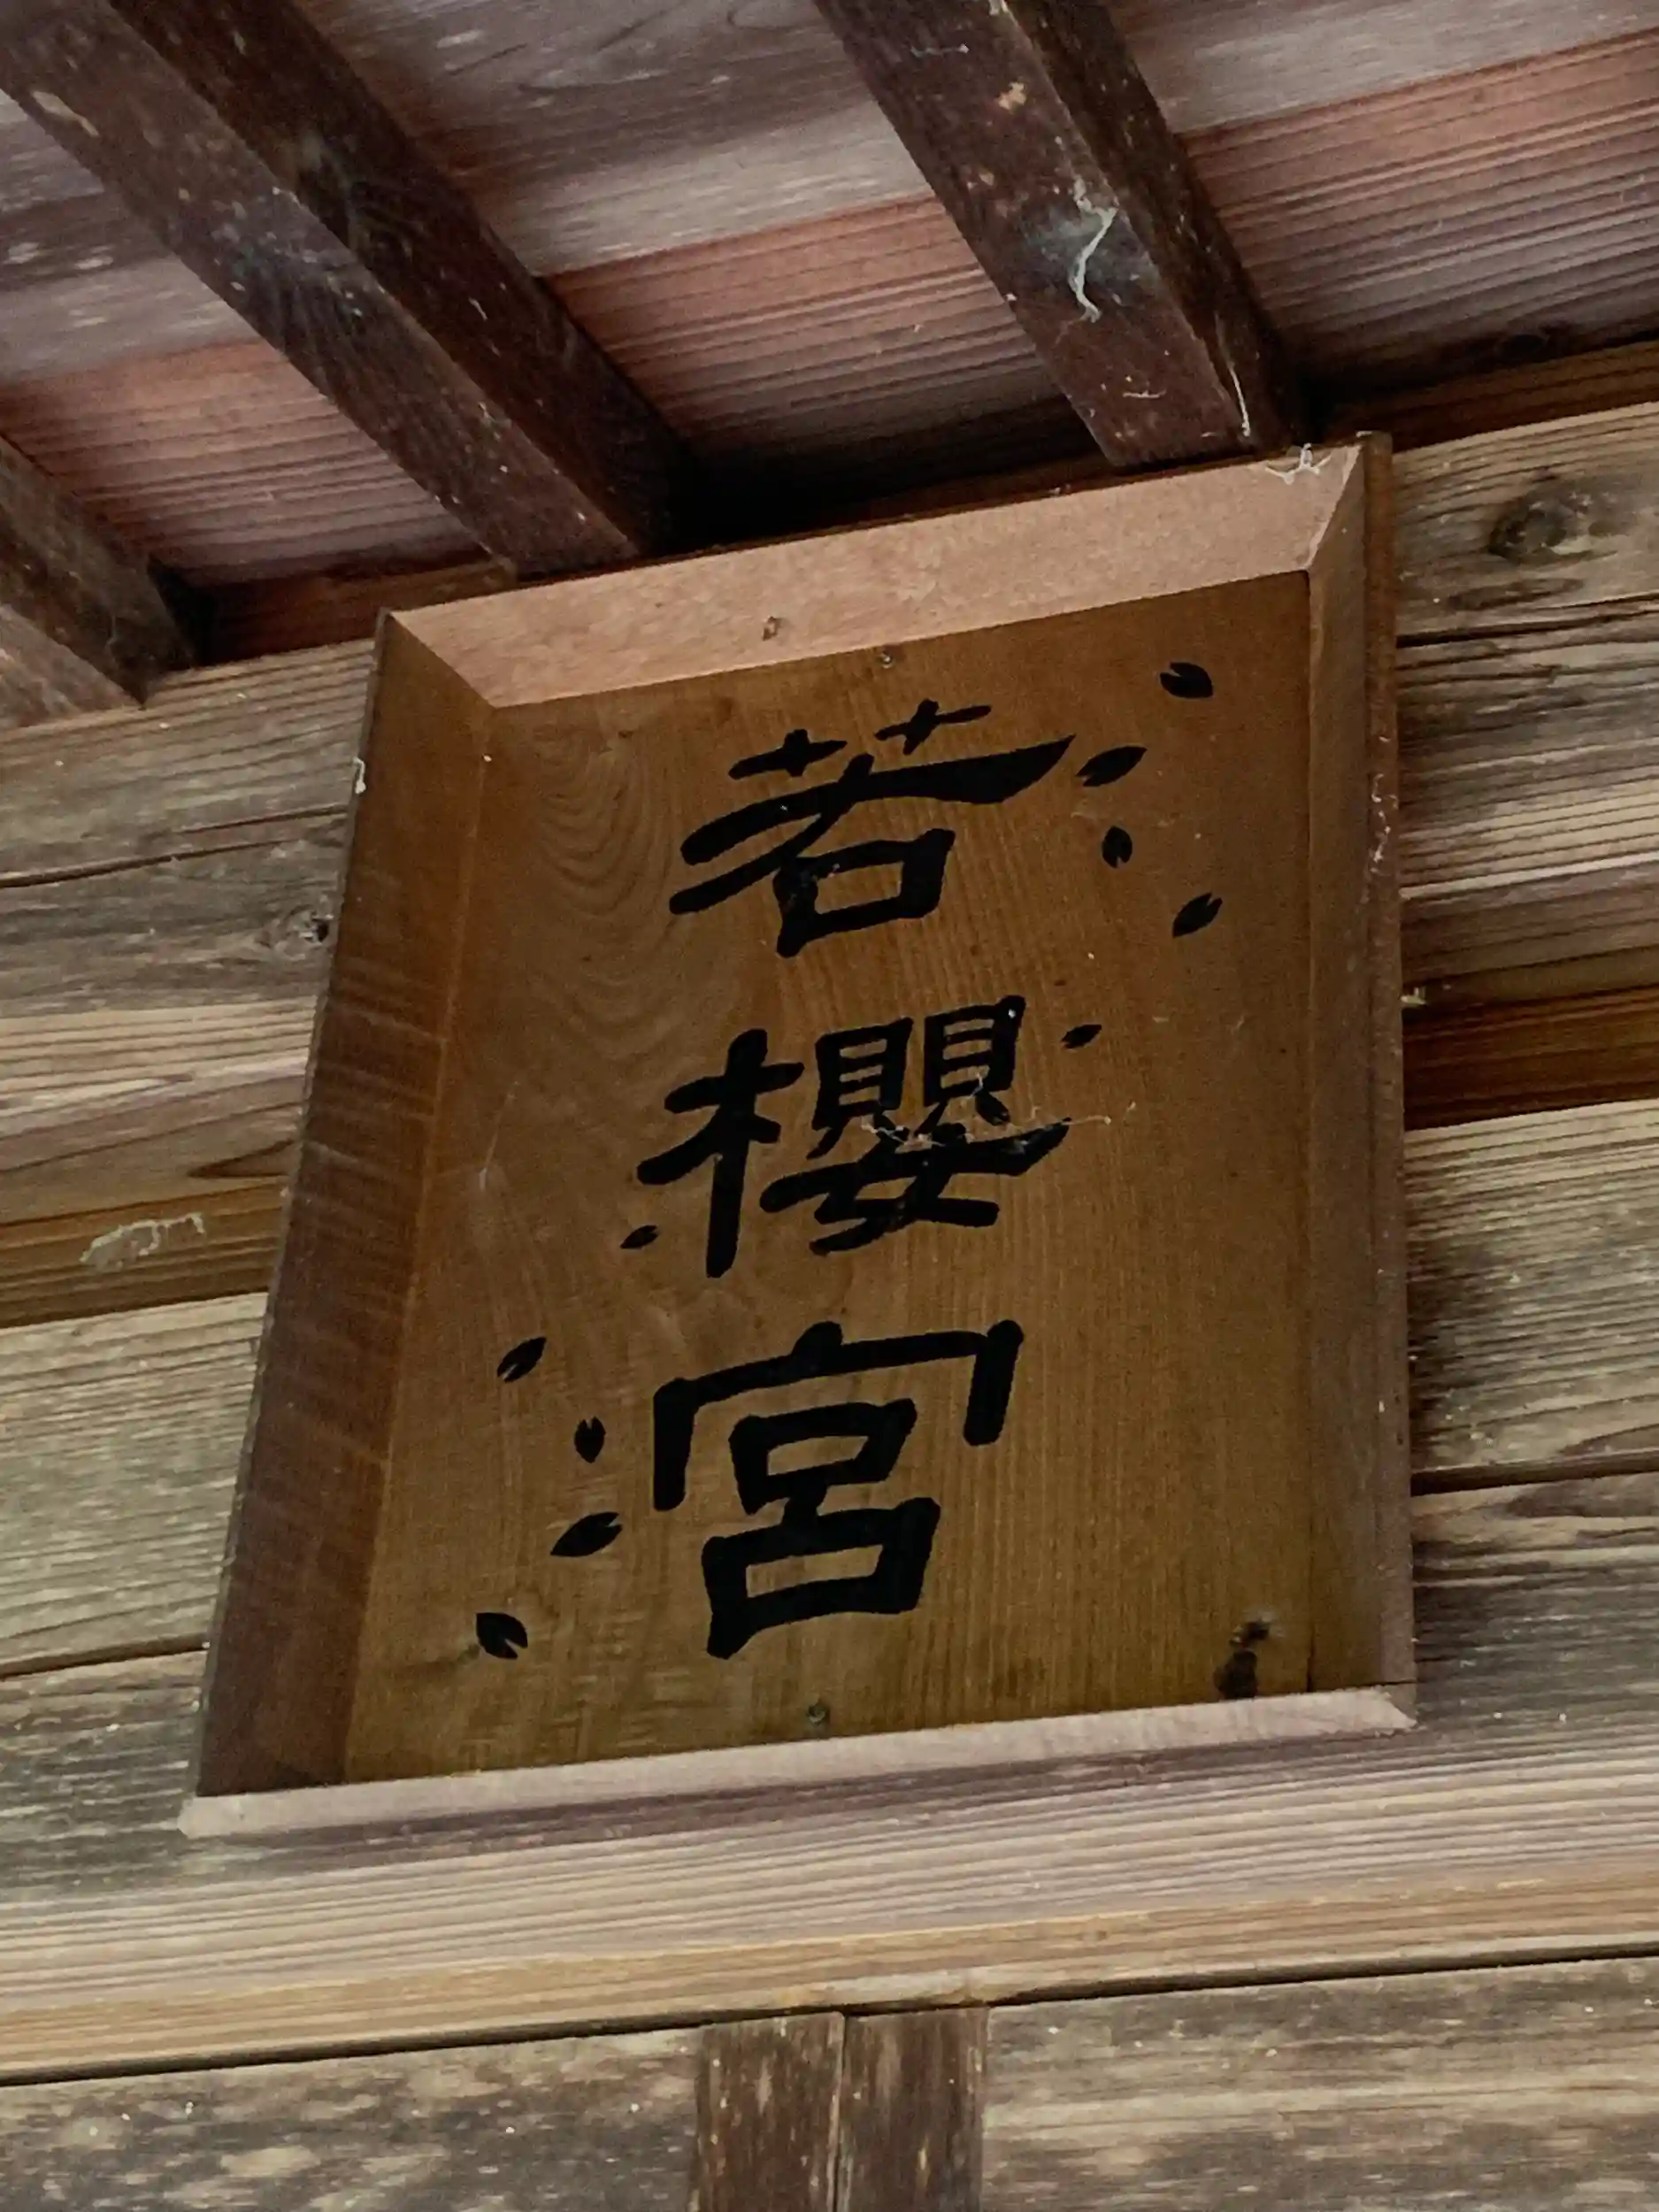 若櫻宮